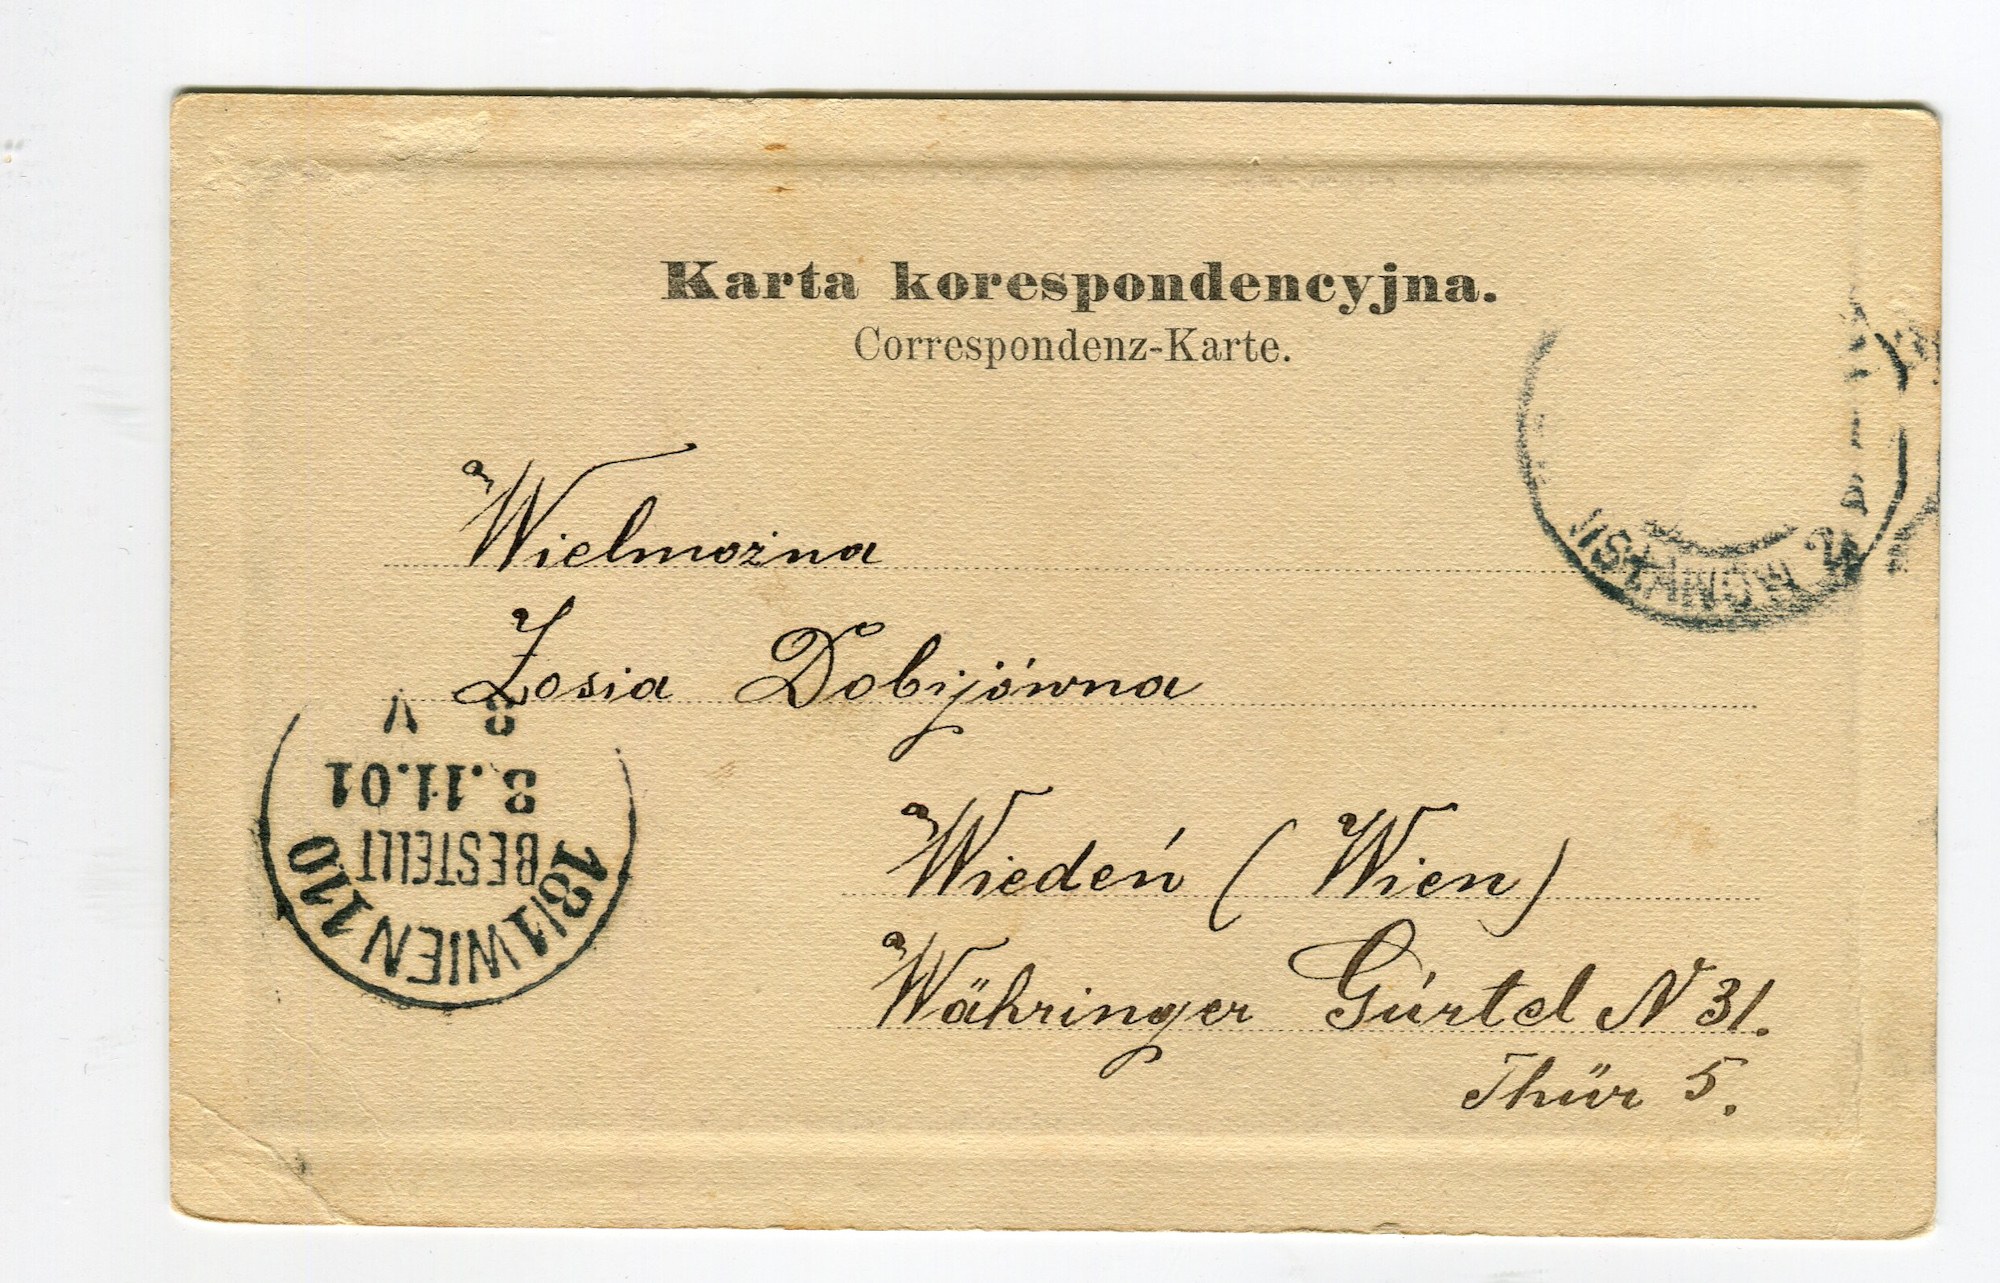 Karta korespondencyjna.
Correspondenz-Karte.
Wielmożna
Zosia Dobijówna
Wiedeń (Wien)
Währinger Gúrtel N 31.
Thür 5.
18/1 WIEN 110
BESTELLT
3.11.01
8 V